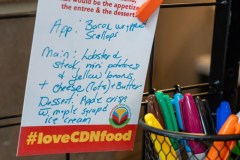 would be the appetizer
the entree & the dessert
App: Bacon wrapped
Scallops
Main: Lobster &
steak, mini potatoes
& yellow beans,
+ cheese (lots) + Butter
Dessert: Apple crisp
w/ maple syrup
ice cream
#loveCDNfood